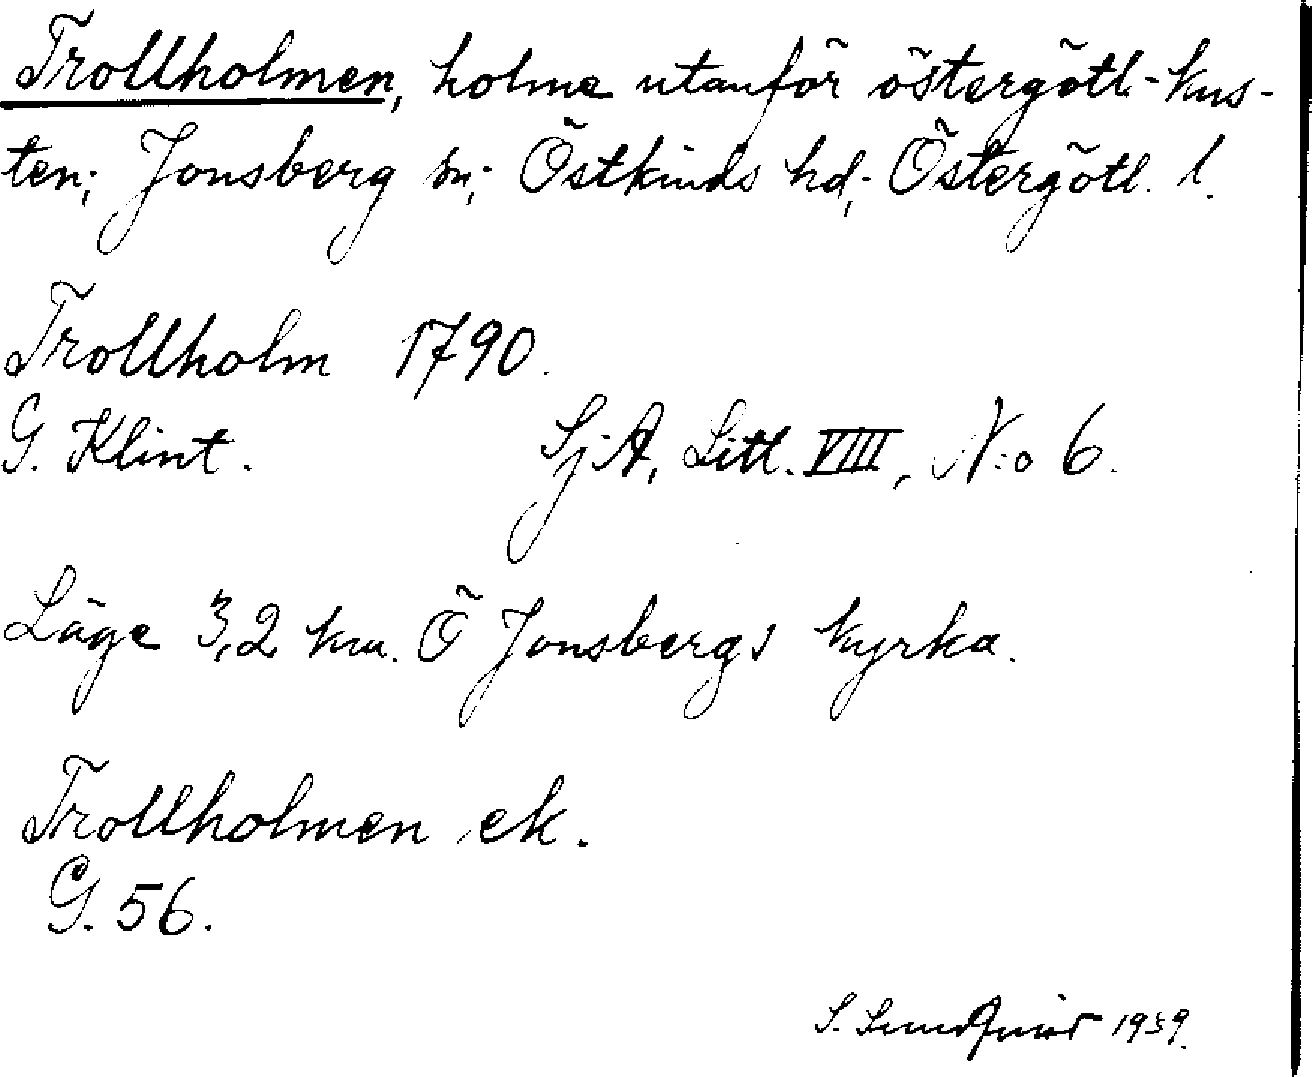 Trollholmen, holme utanför östergötl.-kus-
ten; Jonsberg sn; Östkinds hd; Östergötl. l.
Trollholm 1790.
G. Klint. SjA, Litt. VIII, N:o 6.
Läge 3,2 km. Ö Jonsbergs kyrka.
Trollholmen ek.
G. 56.
S. Sundquist 1939.